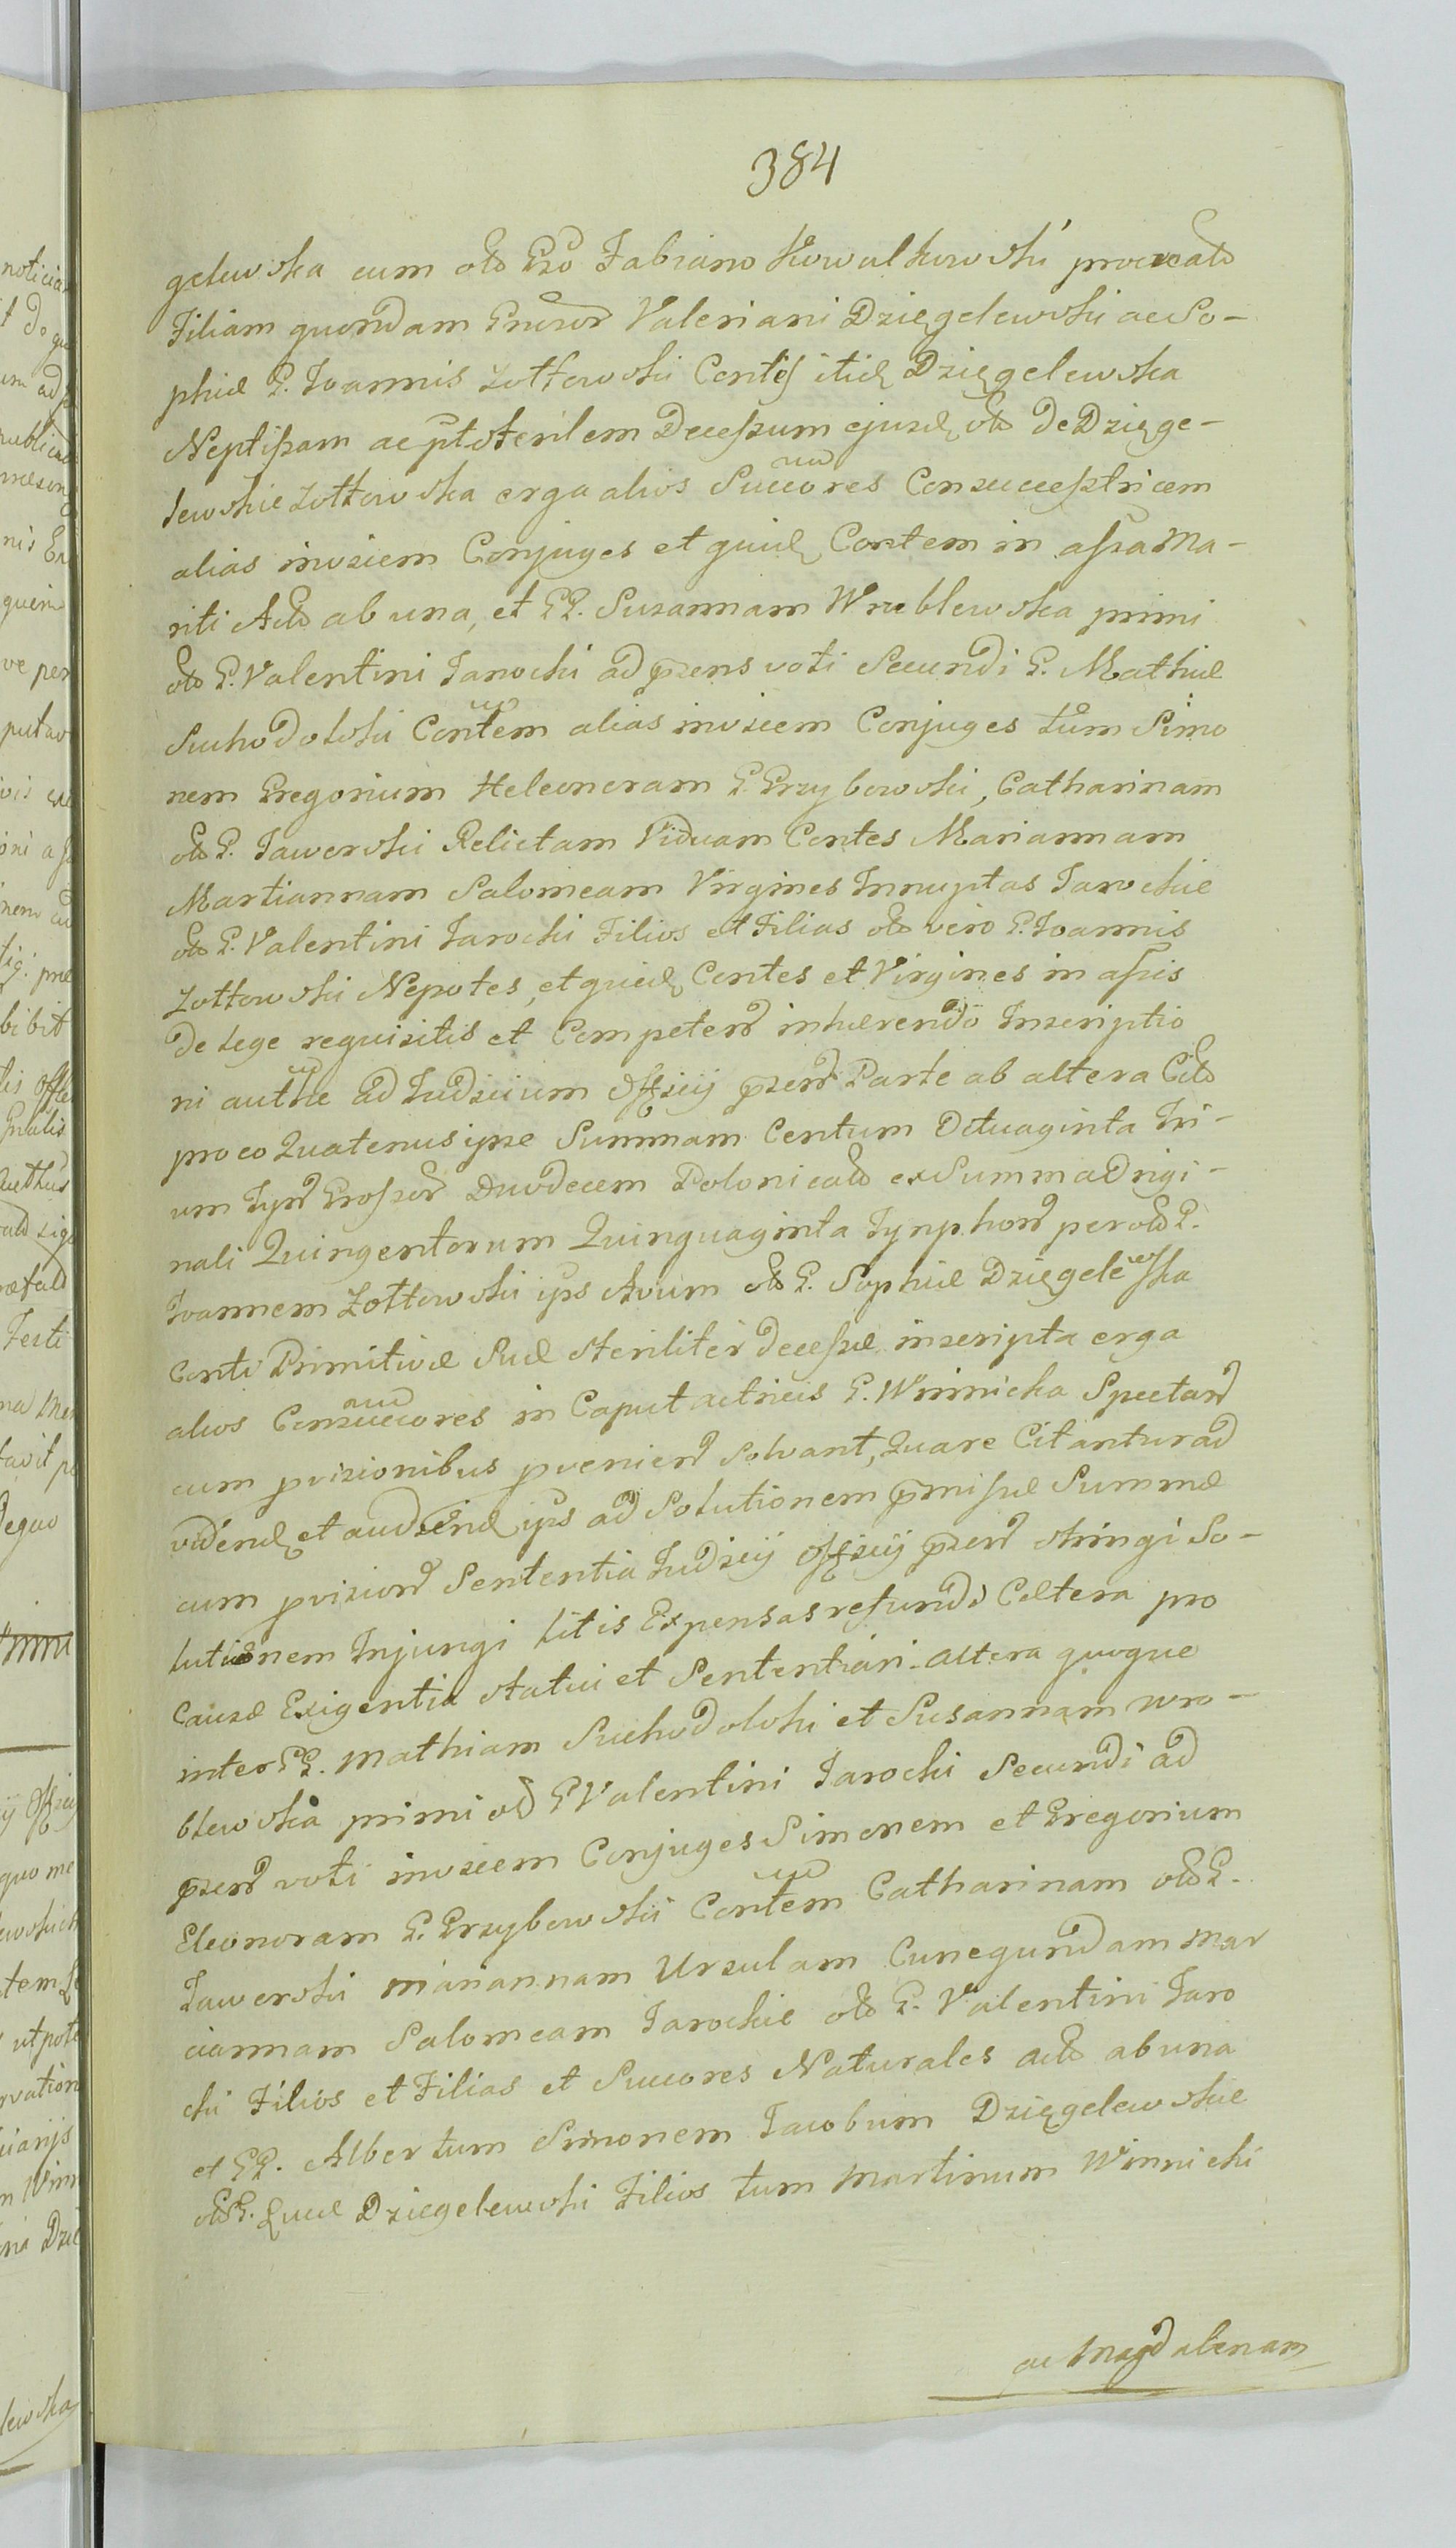 384
gelewska cum olo Gso Fabiano Kowalkowski procreato
Filiam quondam Gnrsor Valeriani Dzięgelewski ac So-
phiæ G. Joannis Zottowski Contis itid Dzięgelewska
Neptissam ac pt sterilem Decessum ejusd olo de Dzięge-
lewskie Zottowska erga alios Succores Consucceptricem
alias invicem Conjuges et quid Contem in assa Ma-
riti Acto ab una, et GG. Susannam Wrublewska primi
olo G. Valentini Jarocki ad præsens voti Secundi G. Mathiæ
Suchodolski Contem alias invicem Conjuges tum Simo
nem Gregorium Heleonoram G. Grzybowski, Catharinam
olo G. Jaworski Relictam Viduam Contes Mariannam
Martiannam Salomeam Virgines Innuptas Jarockie
olo G. Valentini Jarocki Filios et Filias olo vero G. Joannis
Zottowski Nepotes, et quid Contes et Virgines in assis
de lege requisitis et Competen inhærendo Inscriptio
ni authe ad Judicium Officij præsen Parte ab altera Cito
pro eo Quatenus ipse Summam Centum Octuaginta Tri-
um Tyn Grossor Duodecem Polonicalo ex Summa Origi-
nali Quingentorum Quinquaginta Tynphon per olo G.
Joannem Zottowski ips Avum olo G. Sophiæ Dzięgelewska
Conti Primitivæ Suæ steriliter decessæ inscripta erga
alios Consuccores in Caput actricis G. Winnicka Spectan
cum provisionibus provenien Solvant, Quare Citantur ad
videnď et audienď ips ad Solutionem præmissæ Summæ
cum provision Sententia Judicij Officij præsen stringi So-
lutionem Injungi Litis Expensas refundi Cœtera pro
Causæ Exigentia statui et Sententiari. Altera quoque
inter GG. Mathiam Suchodolski et Susannam Wro-
blewska primi olo G Valentini Jarocki Secundi ad
præsen voti invicem Conjuges Simonem et Gregorium
Eleonoram G. Grzybowski Contem Catharinam olo G.
Jaworski Mariannam Ursulam Cunegundam Mar
ciannam Salomeam Jarockie olo G. Valentini Jaro
cki Filios et Filias et Succores Naturales acto ab una
et GG. Albertum Simonem Jacobum Dzięgelewskie
olo G. Lucæ Dzięgelewski Filios tum Martinum Winnicki
ac Magdalenam